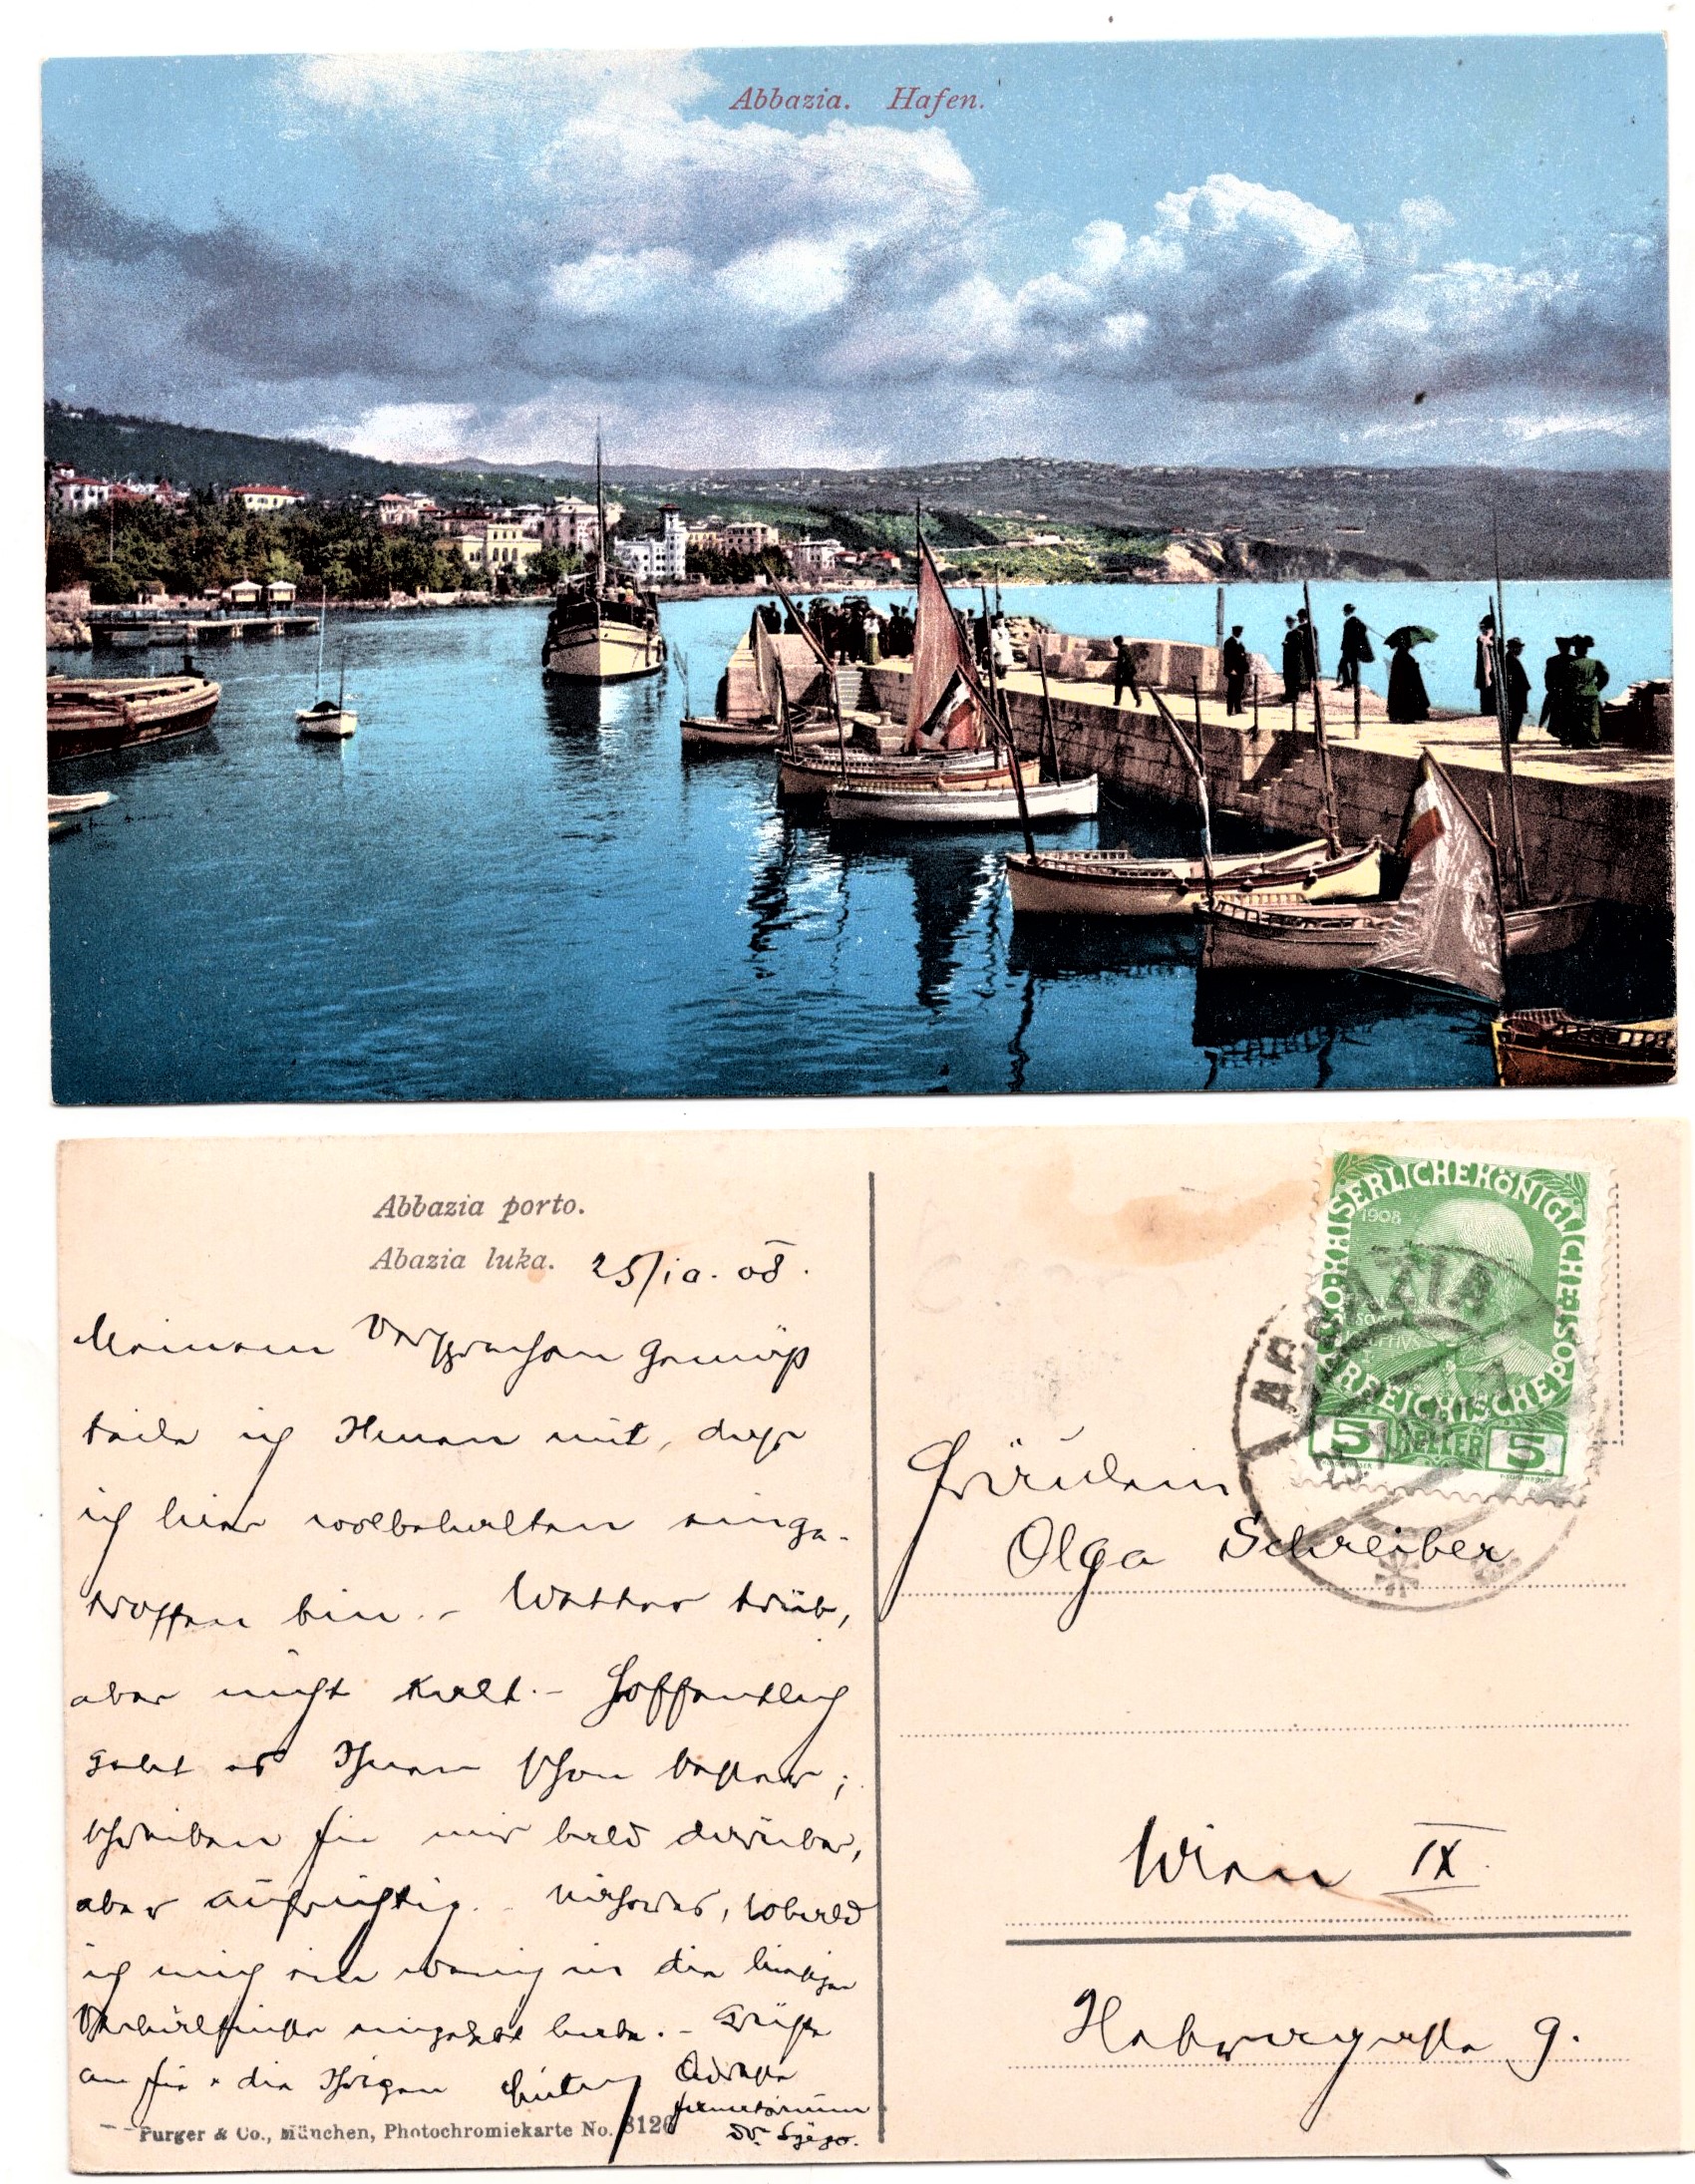 Abbazia. Hafen.
Abbazia porto.
Abazia luka. 25/10. 08.
Meinem Versprechen gemäß
teile ich Ihnen mit, dass
ich hier wolbehalten einge-
troffen bin. - Wetter trüb,
aber nicht kalt. - Hoffentlich
geht es Ihnen schon besser;
schreiben Sie mir bald darüber,
aber aufrichtig. - Näheres, sobald
ich mich ein wenig in die hiesigen
Verhältnisse eingelebt habe. - Grüße
an Sie & die Ihrigen Adresse
Sanatorium
Dr. Szegö.
Purger & Co., München, Photochromiekarte No. 8126
KAISERLICHE KÖNIGLICHE ÖSTERREICHISCHE POST
1908
5 HELLER 5
ABBAZIA
Fräulein
Olga Schreiber
Wien IX.
9.